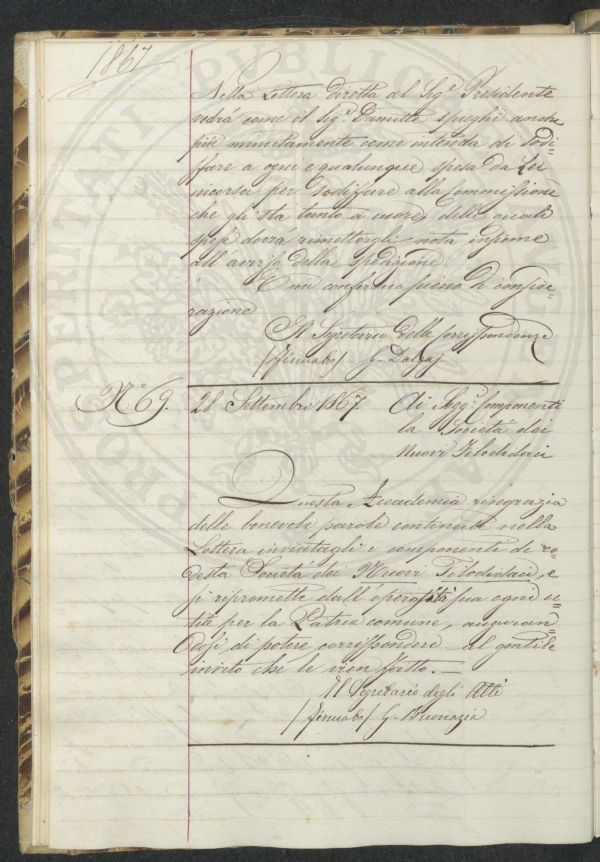 1867
Nella Lettera diretta al Sigr. Presidente
vedrà come il Sigr. Damitte spieghi anche
più minutamente come intenda di Sodi=
sfare a ogni e qualunque spesa da Lei
incorsa per Sodisfare alla Commissione
che gli sta tanto a cuore, delle quali
spese dovrà rimettergli nota insieme
all'avviso della spedizione.
E mi confermo pieno di conside=
razione
Il Segretario della Corrispondenza
/firmato/ G.
No. 69. 28 Settembre 1867 Ai Sigg.ri Componenti
la Società dei
Nuovi Filodidaci
Questa Accademia ringrazia
delle benevole parole contenute nella
Lettera inviatagli i componenti di co=
desta Società dei Nuovi Filodidaci, e
si ripromette dall'operosità sua ogni u=
tile per la Patria comune, auguran=
dosi di potere corrispondere al gentile
invito che le vien fatto. —
Il Segretario degli Atti
/firmato/ G. Buonazia